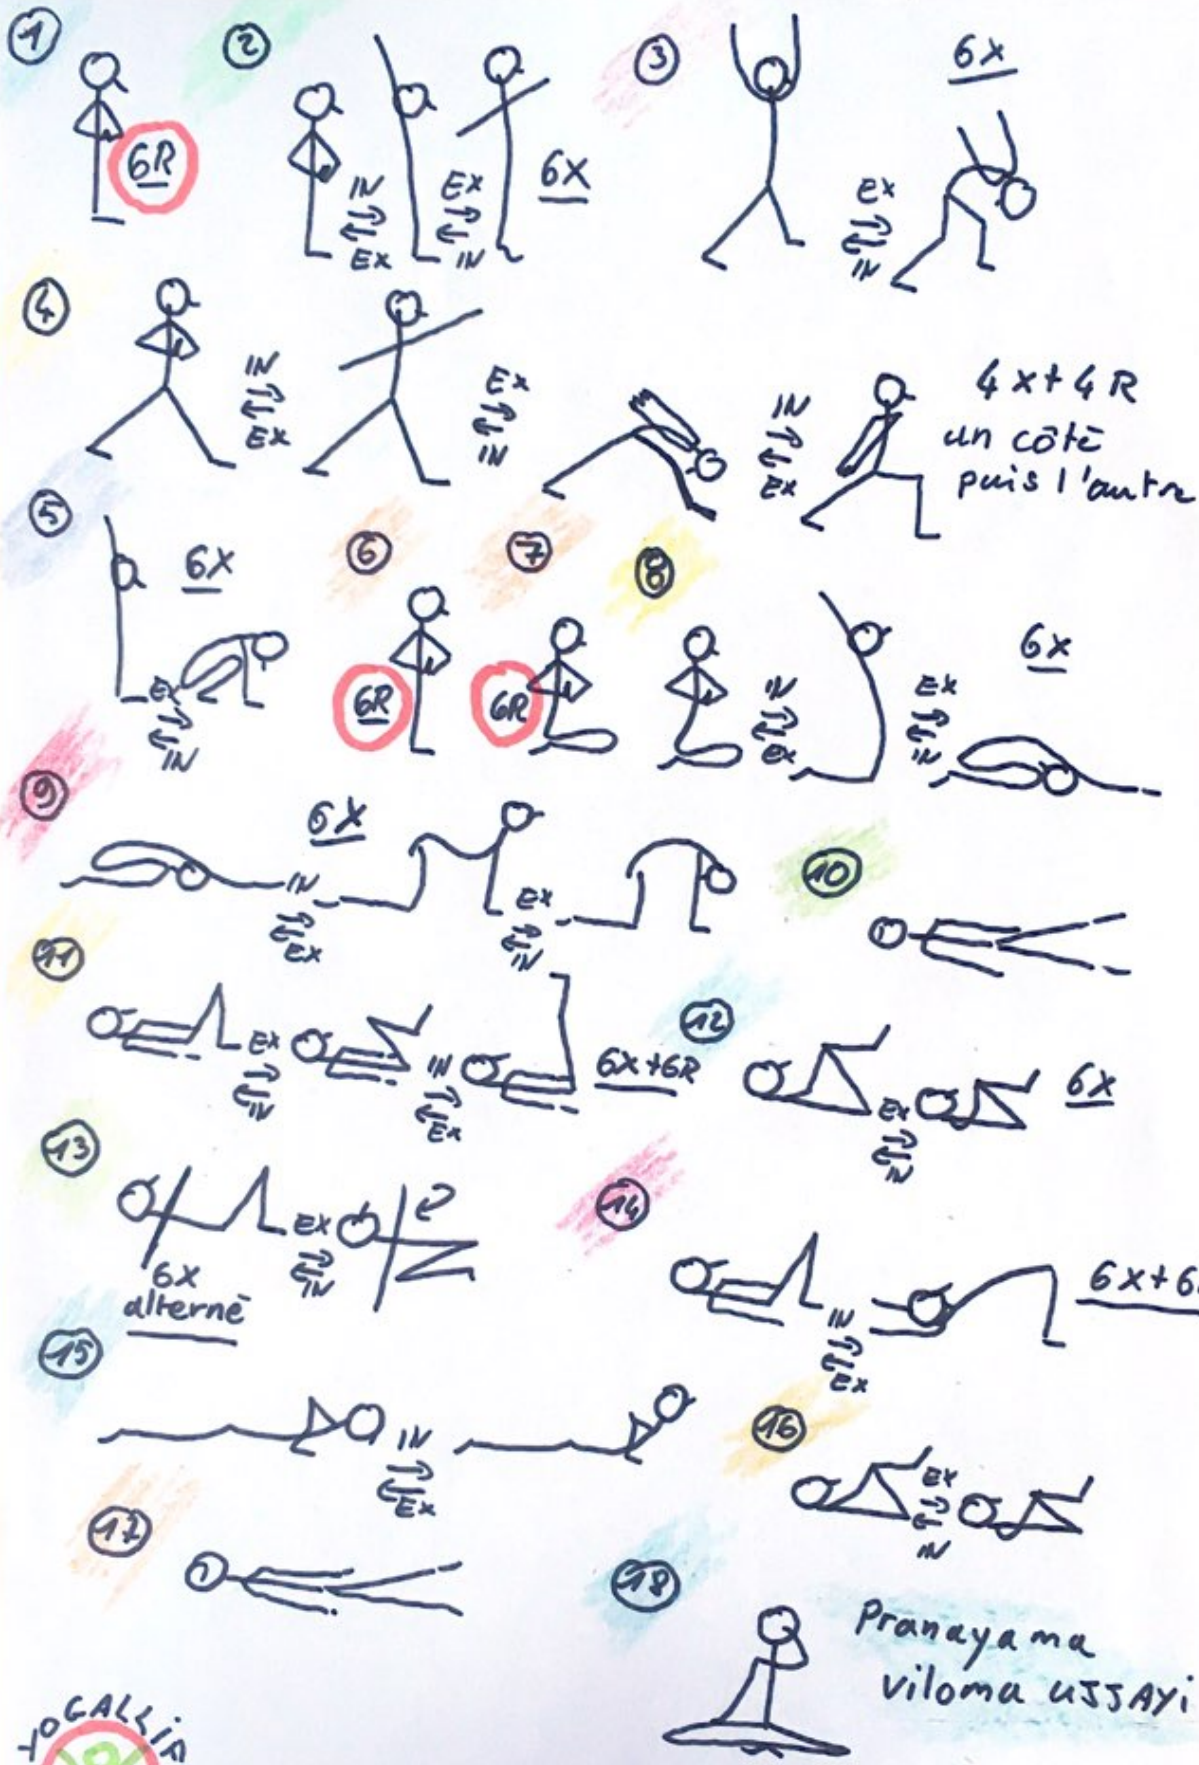 1
2
3
6X
6R
IN
EX
EX
IN
6X
EX
IN
4
IN
EX
EX
IN
IN
EX
4X+4R
un côté
puis l'autre
5
6X
EX
IN
6
7
8
6R
6R
IN
EX
EX
IN
6X
9
6X
IN
EX
EX
IN
10
11
EX
IN
IN
EX
6X+6R
12
EX
IN
6X
13
EX
IN
6X
alterné
14
IN
EX
6X+6
15
IN
EX
16
EX
IN
17
18
Pranayama
viloma UJJAYi
YOGALLIA